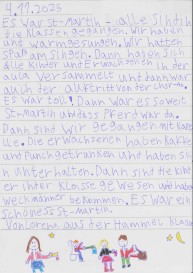 4.11.2025
Es war St-Martin - alle sind in
die Klassen gegangen. Wir haben
und warmgesungen. Wir hatten
spaß am singen. Dann haben sich
alle Kinder und Erwachsenen in der
aula versammelt und dann war
auch der auftritt von der Chor-AG.
Es war toll! Dann war es soweit
St-Martin und dass Pferd war da.
Dann sind wir gegangen mit Kape
lle. Die erwachsenen haben Kakao
und Punch getrunken und haben sich
unterhalten. Dann sind die kind
er in ihrer Klasse gewesen und haben
weckmänner bekommen. Es war ein
schöness St-Martin.
Von Lorena aus der Hammel Klasse